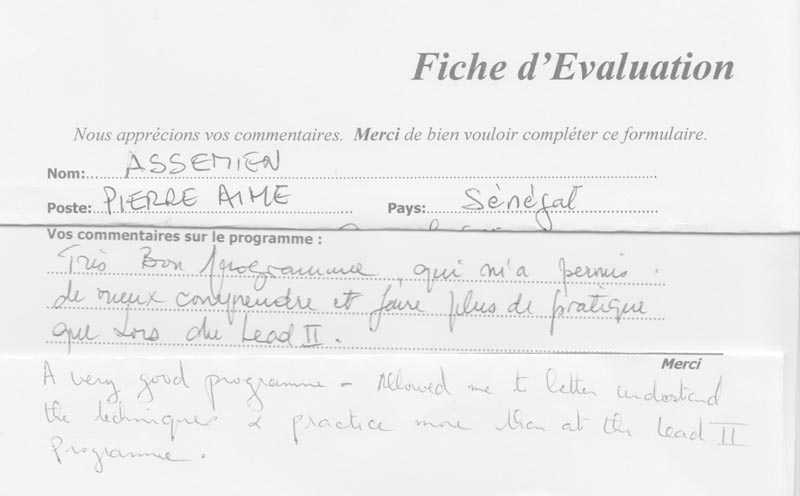 Fiche d'Evaluation
Nous apprécions vos commentaires. Merci de bien vouloir compléter ce formulaire.
Nom: ASSEMIEN
Poste: PIERRE AIME Pays: Sénégal
Vos commentaires sur le programme :
Très Bon programme, qui m'a permis
de mieux comprendre et faire plus de pratique
que lors du Lead II.
Merci
A very good programme - Allowed me to better understand
the techniques & practice more than at the Lead II
Programme.